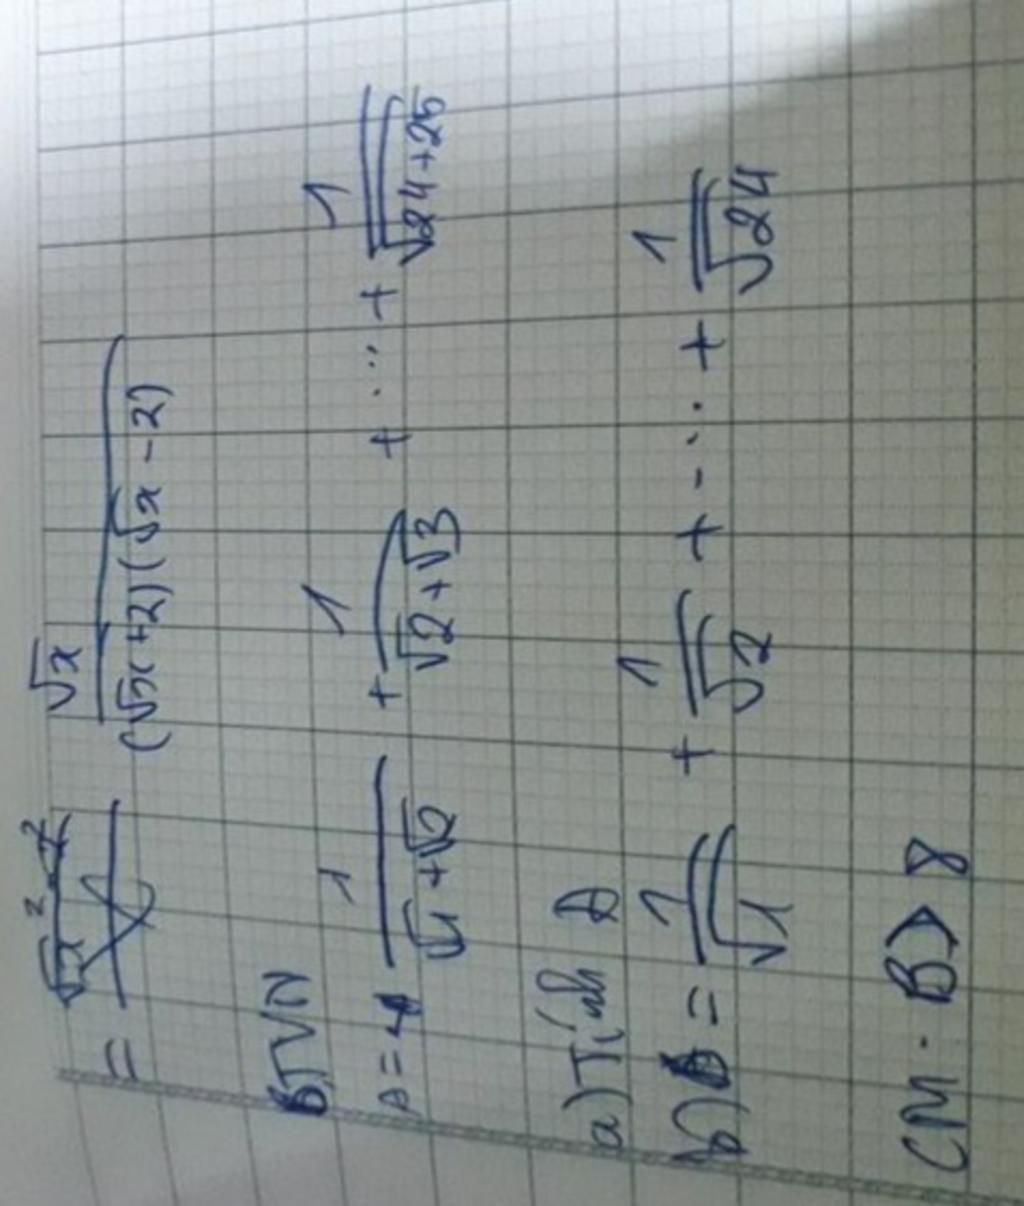 = √x / (√x + 2)(√x - 2)
BTVN
A = 1/(√1 + √2) + 1/(√2 + √3) + ... + 1/√24+25
a) Tính A
b) B = 1/√1 + 1/√2 + - ... + 1/√24
CM. B > 8